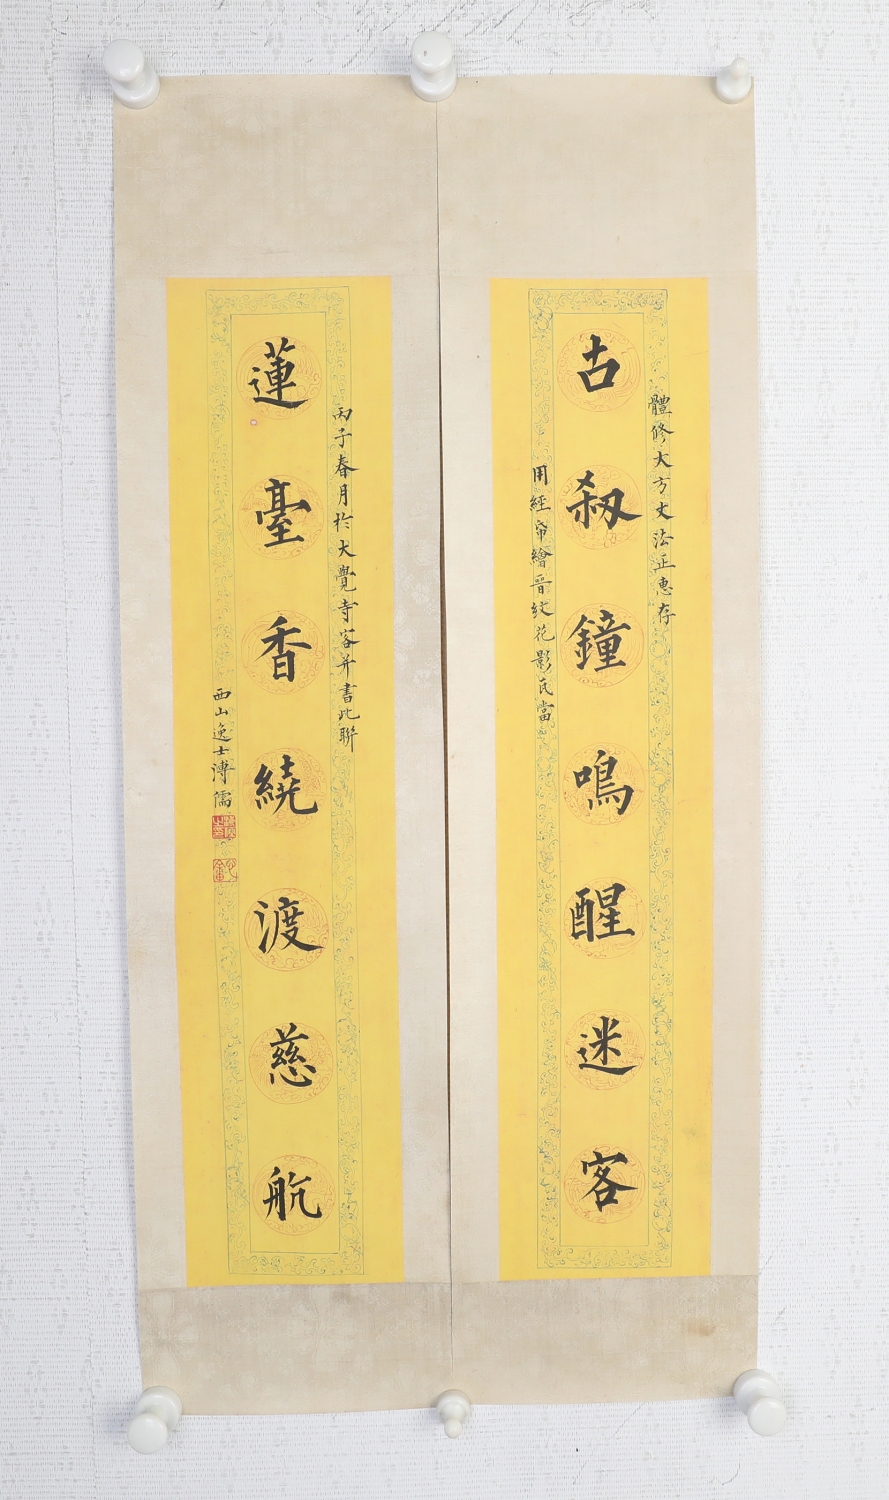 體修大方丈法正惠存
古刹鐘鳴醒迷客
用經帋繪晋紋花影瓦當
丙子春月於大覺寺客并書此聯
蓮臺香繞渡慈航
西山逸士溥儒